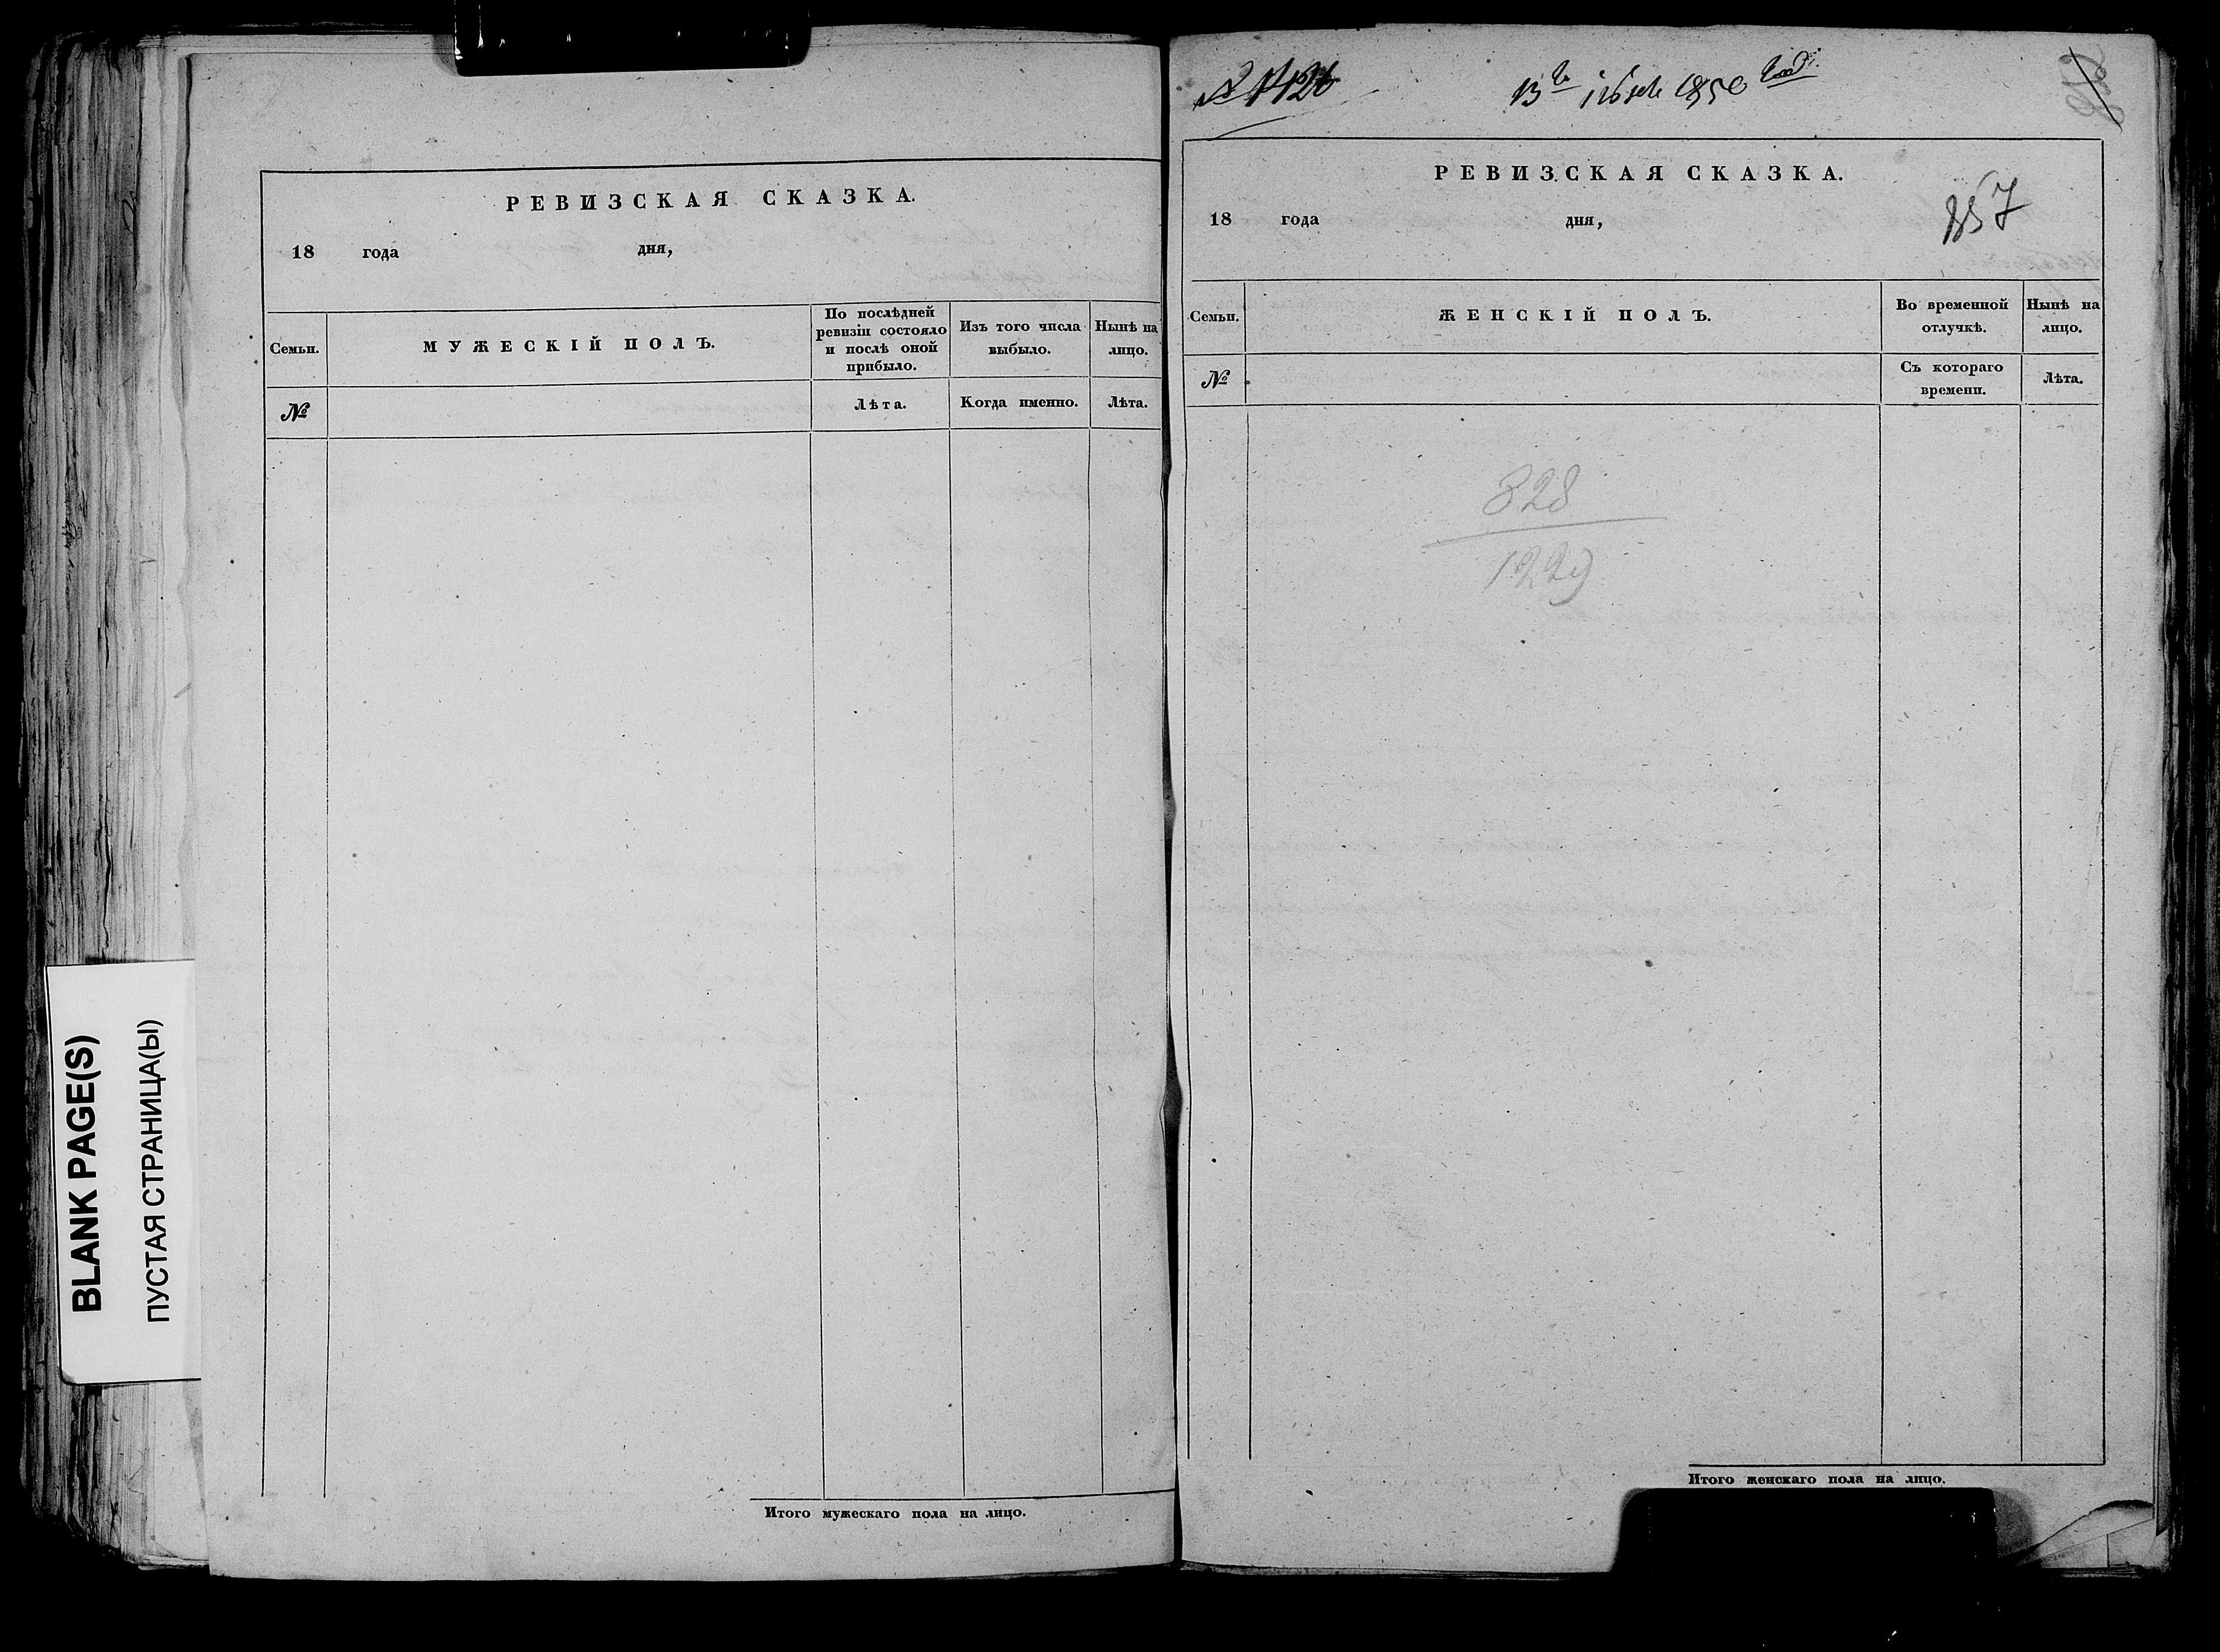 РЕВИЗСКАЯ СКАЗКА.
18 года дня,
Семьи. МУЖЕСКІЙ ПОЛЪ. По послѣдней ревизіи состояло и послѣ оной прибыло. Изъ того числа выбыло. Нынѣ на лицо.
№ Лѣта. Когда именно. Лѣта.
Итого мужескаго пола на лицо.
BLANK PAGE(S)
ПУСТАЯ СТРАНИЦА(Ы)
13го 1850 года
РЕВИЗСКАЯ СКАЗКА.
18 года дня,
857
Семьи. ЖЕНСКІЙ ПОЛЪ. Во временной отлучкѣ. Нынѣ на лицо.
№ Съ котораго времени. Лѣта.
828
1229
Итого женскаго пола на лицо.